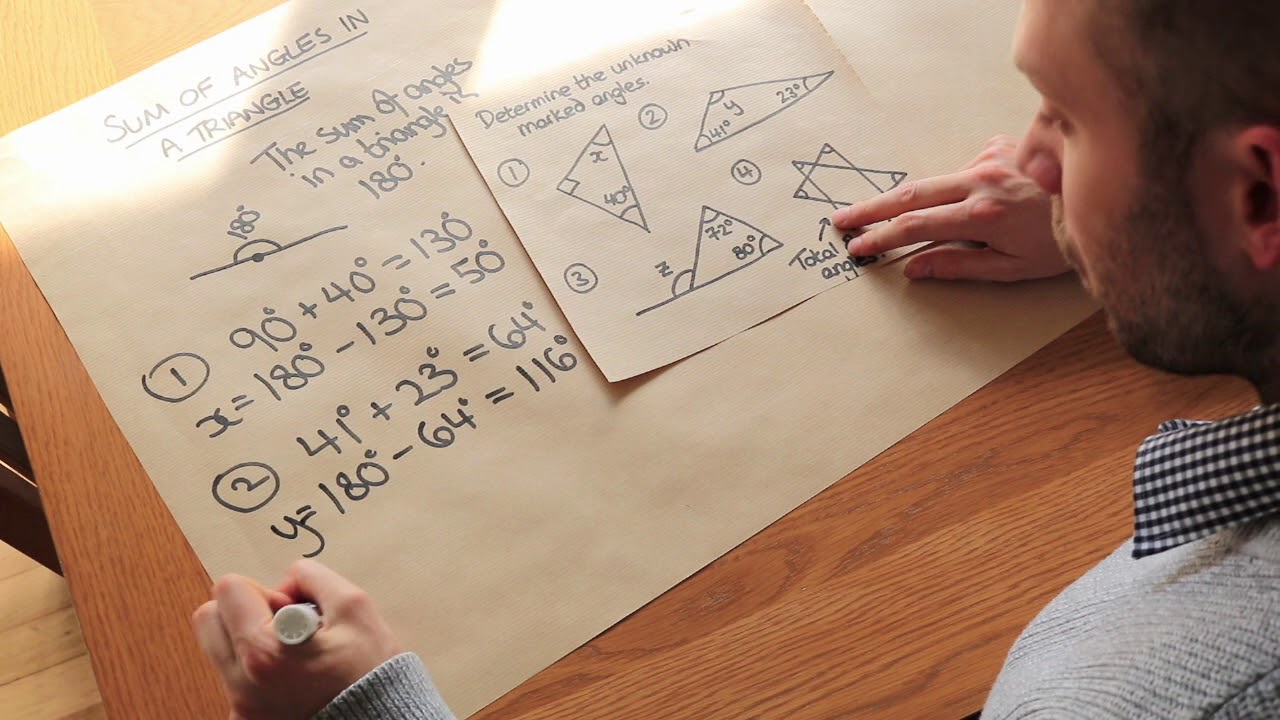 SUM OF ANGLES IN
A TRIANGLE
The sum of angles
in a triangle is
180°.
180°
① 90° + 40° = 130°
x = 180° - 130° = 50°
② 41° + 23° = 64°
y = 180° - 64° = 116°
Determine the unknown
marked angles.
①
x
40°
②
y
41°
23°
③
z
72°
80°
④
Total